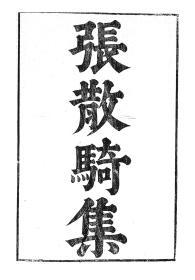 張散騎集